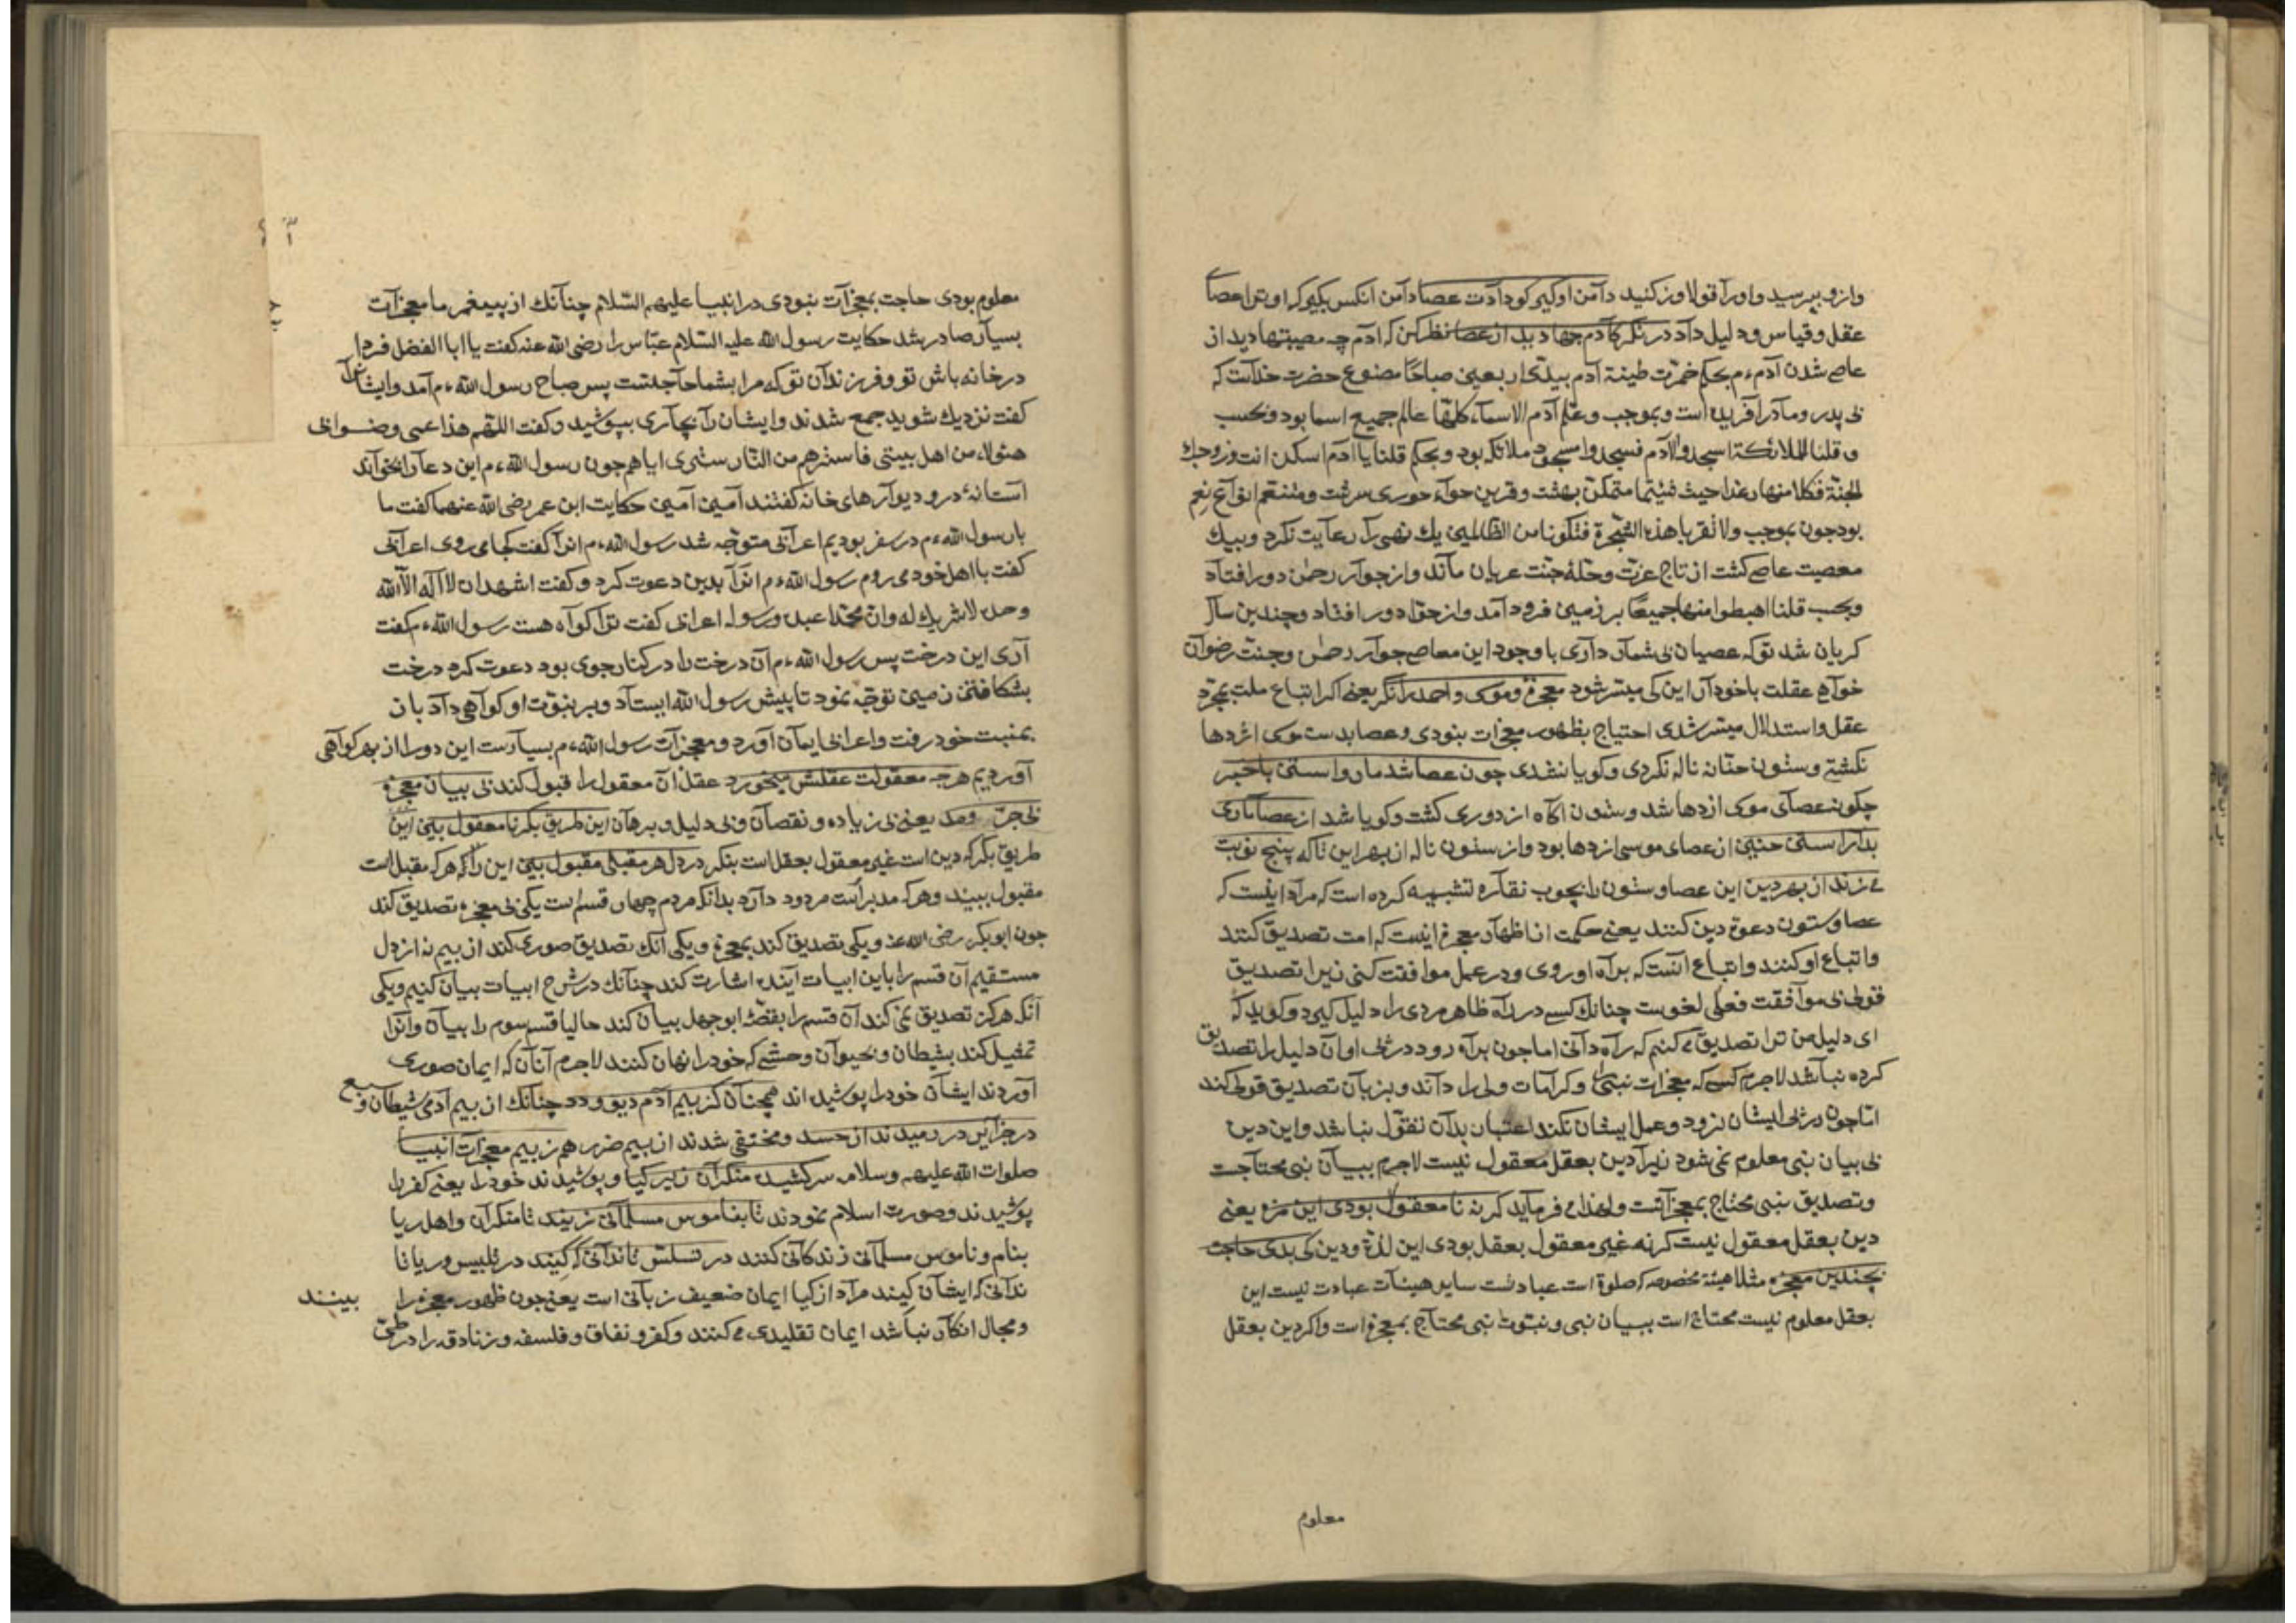 وازو بپرسید واورا قولاورز کنید دامن اوکیر کودادت عصا دامن انکس بکیر که او ترا عصا
عقل وقیاس ودلیل داد درنکر کآدم جها دید از عصا نظر کن که ادم چه مصیبتها دید از
عاصی شدن آدم ءم بحکم خمّرت طینة آدم بیدیّ اربعین صباحًا مصنوع حضرت خداست که
بی پدر ومادر آفریده است وبموجب وعلّم آدم الاسمآء کلّها عالم جمیع اسما بود وبحسب
وقلنا للملائکة اسجدوالآدم فسجدوا مسجود ملائکه بود وبحکم قلنا یاآدم اسکن انت وزوجک
الجنّة فکلا منها رغدا حیث شئتما متمکّن بهشت وقرین حوآء حوری سرشت ومتنعّم انوآع نعم
بود چون بموجب ولاتقربا هذه الشّجرة فتکونا من الظالمین یک نهی را رعایت نکرد وبیک
معصیت عاصی کشت از تاج عزّت وحلّهٔ جنّت عریان ماند واز جوار رحمن دور افتاد
وبحسب قلنا اهبطوا منها جمیعًا بر زمین فرود آمد واز حوّا دور افتاد وچندین سال
کریان شد توکه عصیان بی شمار داری با وجود این معاصی جوار رحمن وجنّت رضوآن
خواهی عقلت باخود آر این کی میسّر شود معجزهٔ موسی واحمد را نکر یعنی اکر اتباع ملت بمجرّد
عقل واستدلال میسّر شدی احتیاج بظهور معجزات نبودی وعصا بدست موسی اژدها
نکشتی وستون حنّانه ناله نکردی وکویا نشدی چون عصا شد مار واستن باخبر
چکونه عصآی موسی ازدها شد وستون آکاه از دوری کشت وکویا شد از عصا ماری
بد از استن حنین از عصای موسی ازدها بود واز ستون ناله از بهر این ناکه پنج نوبت
می زند از بهر دین این عصا وستون را بچوب نقاره تشبیه کرده است که مراد اینست که
عصا وستون دعوة دین کنند یعنی حکمت از اظهار معجزه اینست که امت تصدیق کنند
واتباع او کنند واتباع آنست که براه او روی ودر عمل موافقت کنی زیرا تصدیق
قولی بی موآفقت فعلی لغوست چنانک کسی در راه ظاهر مردی را دلیل کیرد وکوید که
ای دلیل من ترا تصدیق می کنم که راه دآنی اما چون براه رود در پی او آن دلیل را تصدیق
کرده نباشد لاجرم کسی که معجزات نبی را وکرامات ولی را داند وبزبان تصدیق قولی کند
امّا چون در پی ایشان نرود وعمل ایشان نکند اعتبار بدآن نقول نباشد واین دین
بی بیان نبی معلوم نمی شود زیرا دین بعقل معقول نیست لاجرم ببیان نبی محتاجت
وتصدیق نبی محتاج بمعجزآتست ولهذا می فرماید کرنه نا معقول بودی این مزه یعنی
دین بعقل معقول نیست کرنه غیر معقول بعقل بودی این لذّة ودین کی بدی حاجت
بچندین معجزه مثلا هیئة مخصوصه که صلوة است عبادتست سایر هیئآت عبادت نیست این
بعقل معلوم نیست محتاج است ببیان نبی ونبوّت نبی محتاج بمعجزه است واکر دین بعقل
معلوم
معلوم بودی حاجت بمعجزآت نبودی در انبیا علیهم السّلام چنآنک از پیغمبر ما معجزآت
بسیآر صادر شد حکایت رسول الله علیه السّلام عبّاس را رضی الله عنه کفت یا ابا الفضل فردا
در خانه باش تو وفرزندآن توکه مرا بشما حآجتست پس صباح رسول الله ءم آمد وایشانرا
کفت نزدیک شوید جمع شدند وایشان را بچآدری بپوشید وکفت اللّهم هذا عمی وصنو ابی
هئولاء من اهل بیتی فاسترهم من النّار ستری ایاهم چون رسول الله ءم این دعا را بخوآند
آستانهٔ در ودیوآرهای خانه کفتند آمین آمین حکایت ابن عمر رضی الله عنهما کفت ما
بارسول الله ءم در سفر بودیم اعرآبی متوجّه شد رسول الله ءم انرا کفت کجا می روی اعرآبی
کفت با اهل خود می روم رسول الله ءم انرا بدین دعوت کرد وکفت اشهد ان لا آله الّا الله
وحده لاشریک له وان محمّدا عبده ورسوله اعرابی کفت ترا کوآه هست رسول الله ءم کفت
آری این درخت پس رسول الله ءم آن درخت را در کنار جوی بود دعوت کرد درخت
بشکافتن زمین توجّه نمود تا پیش رسول الله ایستآد وبر نبوّت او کوآهی دآد باز
بمنبت خود رفت واعرابی ایمآن آورد ومعجزآت رسول الله ءم بسیارست این دورا از بهر کوآهی
آوردیم هرچه معقولت عقلش میخورد عقل آن معقول را قبول کند بی بیان معجزه
بی جرّ ومد یعنی بی زیاده ونقصآن وبی دلیل وبرهآن این طریق بکر نامعقول بین این
طریق بکر که دین است غیر معقول بعقل است بنکر در دل هر مقبلی مقبول بین این را که هرکه مقبل است
مقبول ببیند وهرکه مدبرآست مردود دارد بدآنکه مردم چهار قسم است یکی بی معجزه تصدیق کند
چون ابوبکر رضی الله عنه ویکی تصدیق کند بمعجزه ویکی آنک تصدیق صوری کند از بیم نه از دل
مستقیم آن قسم را باین ابیات آینده اشارت کند چنآنک در شرح ابیات بیان کنیم ویکی
آنکه هرکز تصدیق نمی کند آن قسم را بقصّهٔ ابوجهل بیان کند حالیا قسم سوم را بیآن وآنرا
تمثیل کند بشیطان وبحیوآن وحشی که خود را نهان کنند لاجرم آنآن که ایمان صوری
آوردند ایشآن خود را پوشیده اند همچنآن کز بیم آدم دیو ودد چنآنک از بیم آدمی شیطان وسبع
در جزآیر در رمیدند از حسد ومختفی شدند از بیم ضرر هم ز بیم معجزآت انبیا
صلوات الله علیهم وسلامه سر کشیده منکرآن زیر کیا وپوشیدند خود را یعنی کفر را
پوشیدند وصورت اسلام نمودند تا بناموس مسلمآنی زیند تا منکرآن واهل ریا
بنام وناموس مسلمآنی زندکآنی کنند در تسلّس تا ندآنی که کیند در تلبیس وریا تا
ندآنی که ایشآن کیند مرآد از کیا ایمان ضعیف زبآنی است یعنی چون ظهور معجزه را بینند
ومجال انکآر نباشد ایمان تقلیدی می کنند وکفر ونفاق وفلسفه وزنادقه را در طیّ